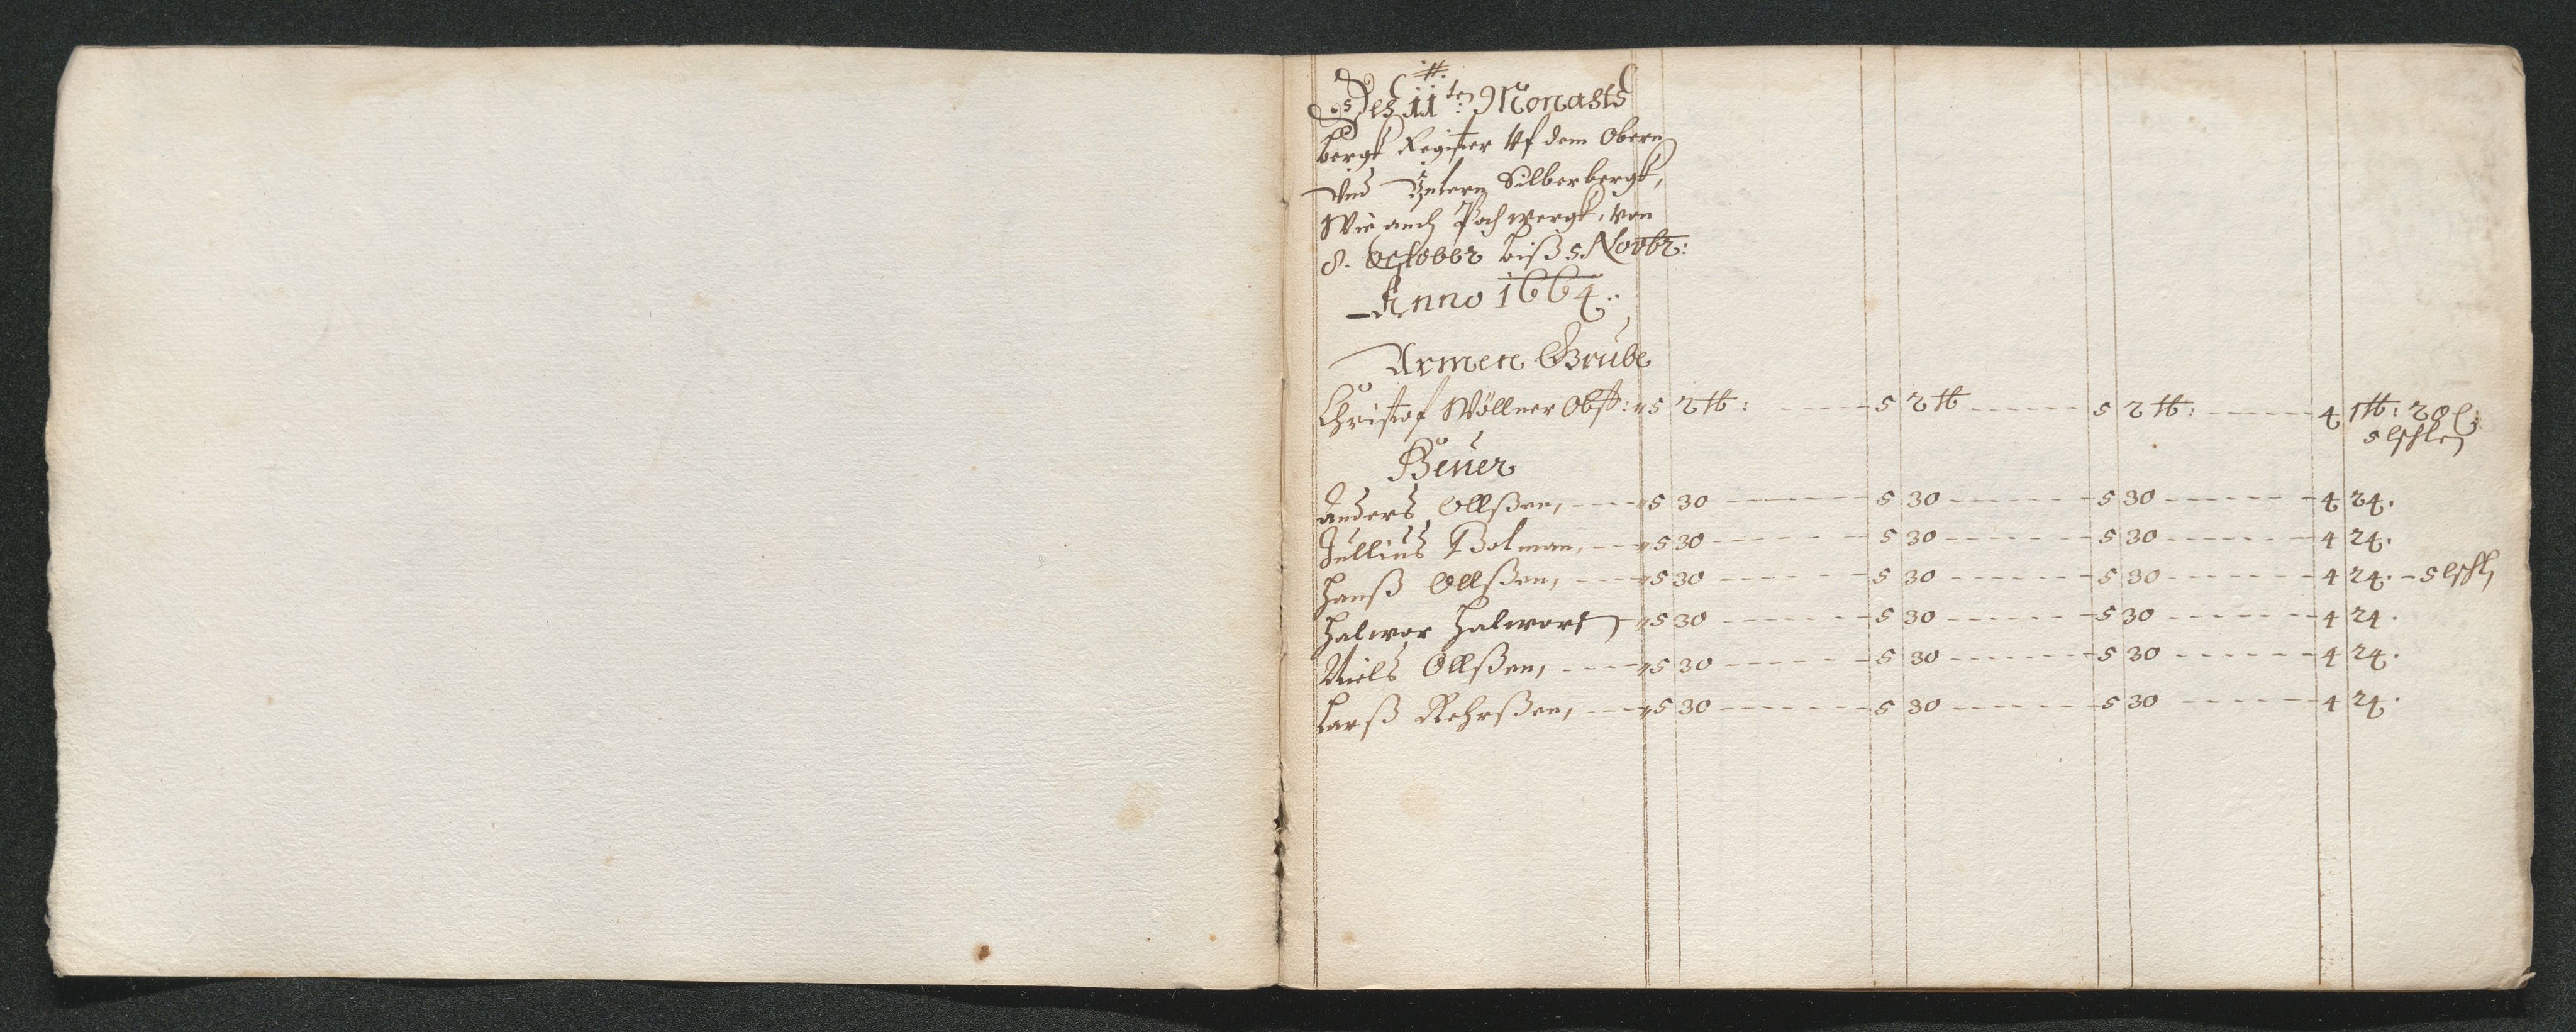 Des 11ten Monahts
bergk Register Vf dem Obern
Vnd Vntern Silberbergk,
Wie auch Pochwergk, von
8. October biß 5 Novbr:
Anno 1664.
Armen Grube
Christof Wöllner Obst: 5 2 tb: 5 2 tb 5 2 tb: 4 1 tb: 28
Beuer
Anders Ollßen, 5 30 5 30 5 30 4 24.
Jullius Bolman, 5 30 5 30 5 30 4 24.
Hanß Ollßen, 5 30 5 30 5 30 4 24.
Halwor Halworß 5 30 5 30 5 30 4 24.
Niels Ollßen, 5 30 5 30 5 30 4 24.
Larß Rehrßen, 5 30 5 30 5 30 4 24.